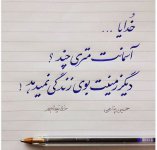 خدایا ...
آسمانت متری چند ؟
دیگر زمینت بوی زندگی نمیدهد !
حسین پناهی